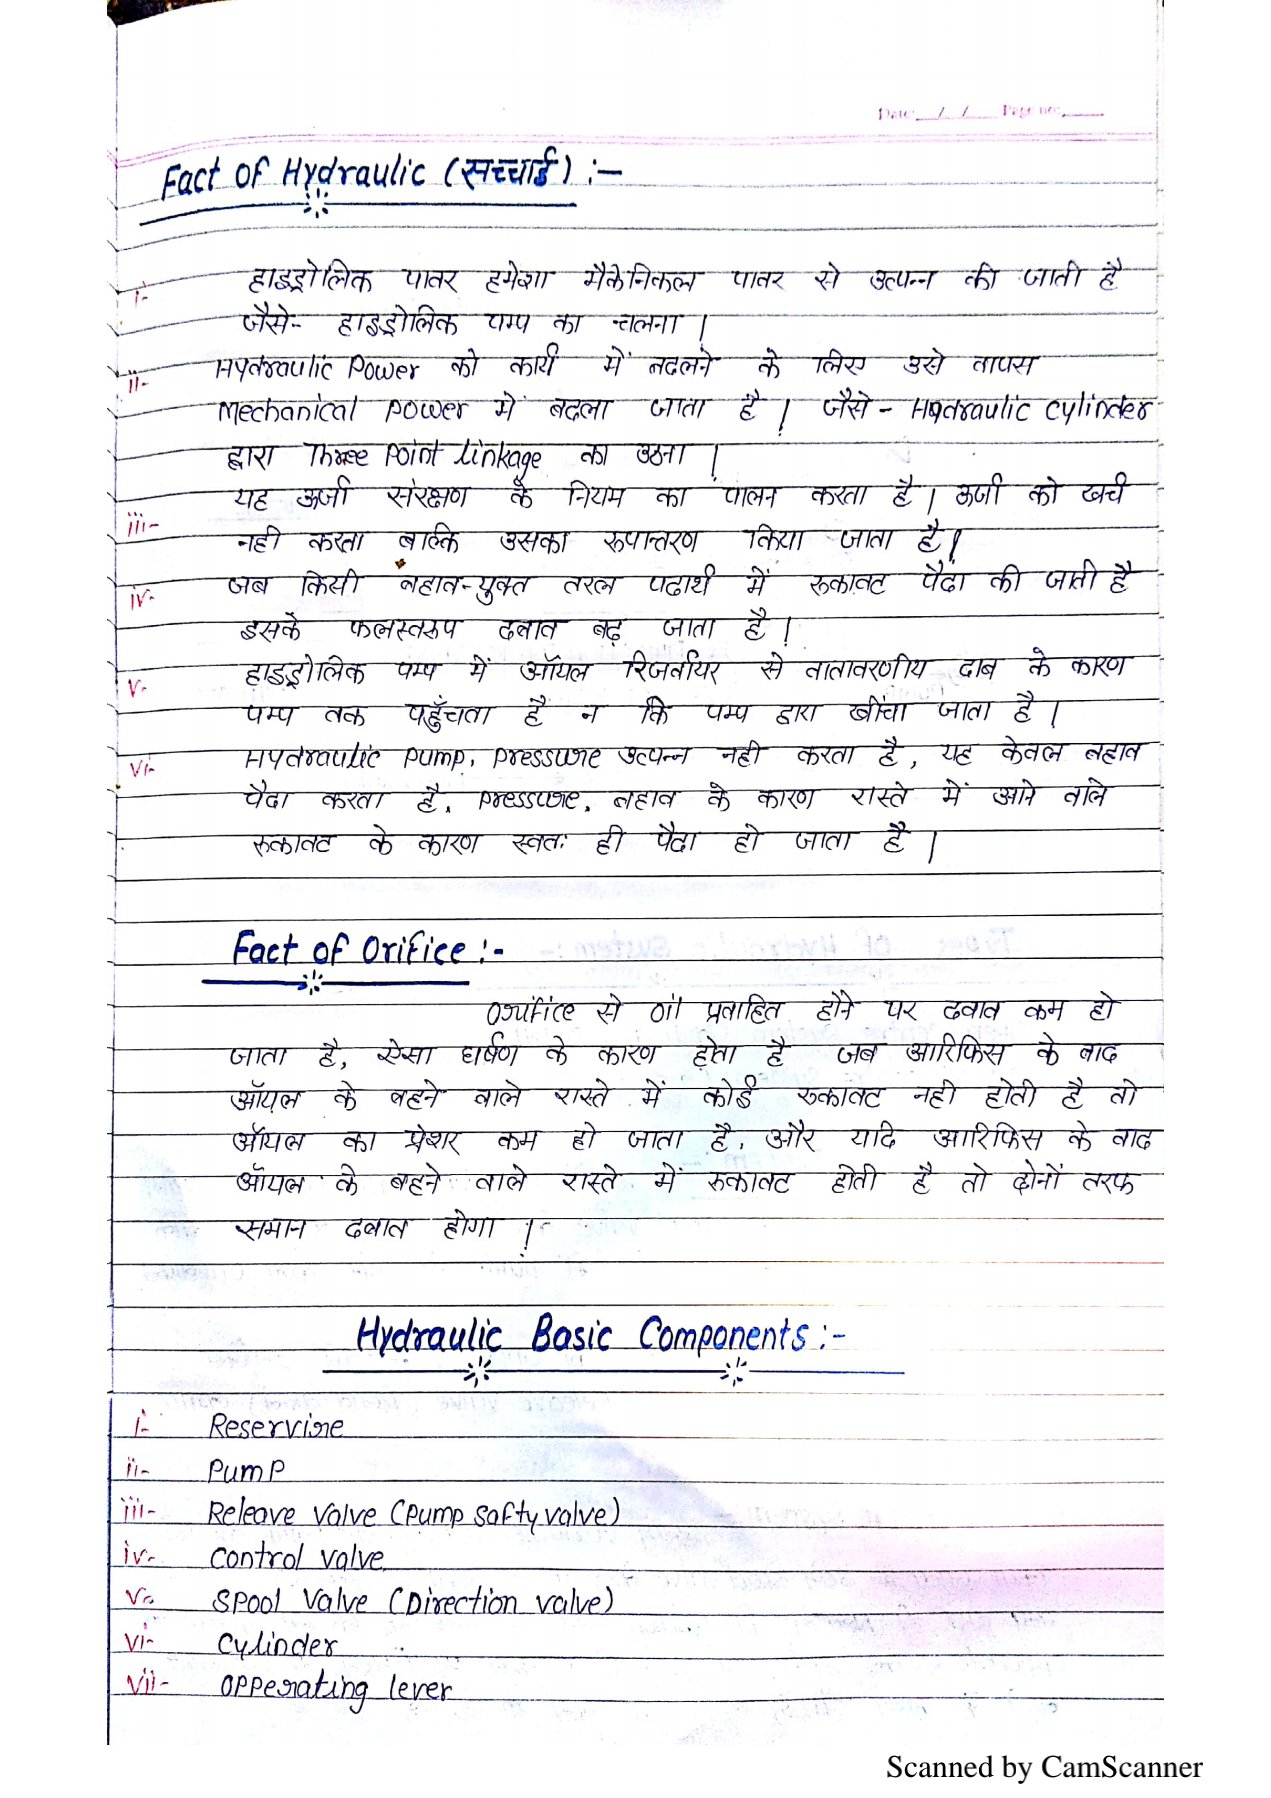 Date: __/__/__ Page no: ____
Fact of Hydraulic (सच्चाई) :-
i- हाइड्रोलिक पावर हमेशा मैकेनिकल पावर से उत्पन्न की जाती है
जैसे- हाइड्रोलिक पम्प का चलना |
ii- Hydraulic Power को कार्य में बदलने के लिए उसे वापस
Mechanical power में बदला जाता है | जैसे - Hydraulic cylinder
द्वारा Three Point linkage का उठना |
iii- यह ऊर्जा संरक्षण के नियम का पालन करता है | ऊर्जा को खर्च
नही करता बाल्कि उसका रूपान्तरण किया जाता है |
iv- जब किसी बहाव-युक्त तरल पदार्थ में रूकावट पैदा की जाती है
इसके फलस्वरूप दबाव बढ़ जाता है |
v- हाइड्रोलिक पम्प में ऑयल रिजर्वायर से वातावरणीय दाब के कारण
पम्प तक पहुँचता है न कि पम्प द्वारा खींचा जाता है |
vi- Hydraulic pump, pressure उत्पन्न नही करता है, यह केवल बहाव
पैदा करता है, pressure, बहाव के कारण रास्ते में आने वाले
रूकावट के कारण स्वतः ही पैदा हो जाता है |
Fact of Orifice :-
Orifice से oil प्रवाहित होने पर दबाव कम हो
जाता है, ऐसा घर्षण के कारण होता है जब आरिफिस के बाद
ऑयल के बहने वाले रास्ते में कोई रूकावट नही होती है तो
ऑयल का प्रेशर कम हो जाता है, और यदि आरिफिस के बाद
ऑयल के बहने वाले रास्ते में रूकावट होती है तो दोनों तरफ
समान दबाव होगा |
Hydraulic Basic Components :-
i- Reservire
ii- Pump
iii- Releave valve (Pump safty valve)
iv- Control valve
v- Spool valve (Direction valve)
vi- Cylinder
vii- Opperating lever
Scanned by CamScanner